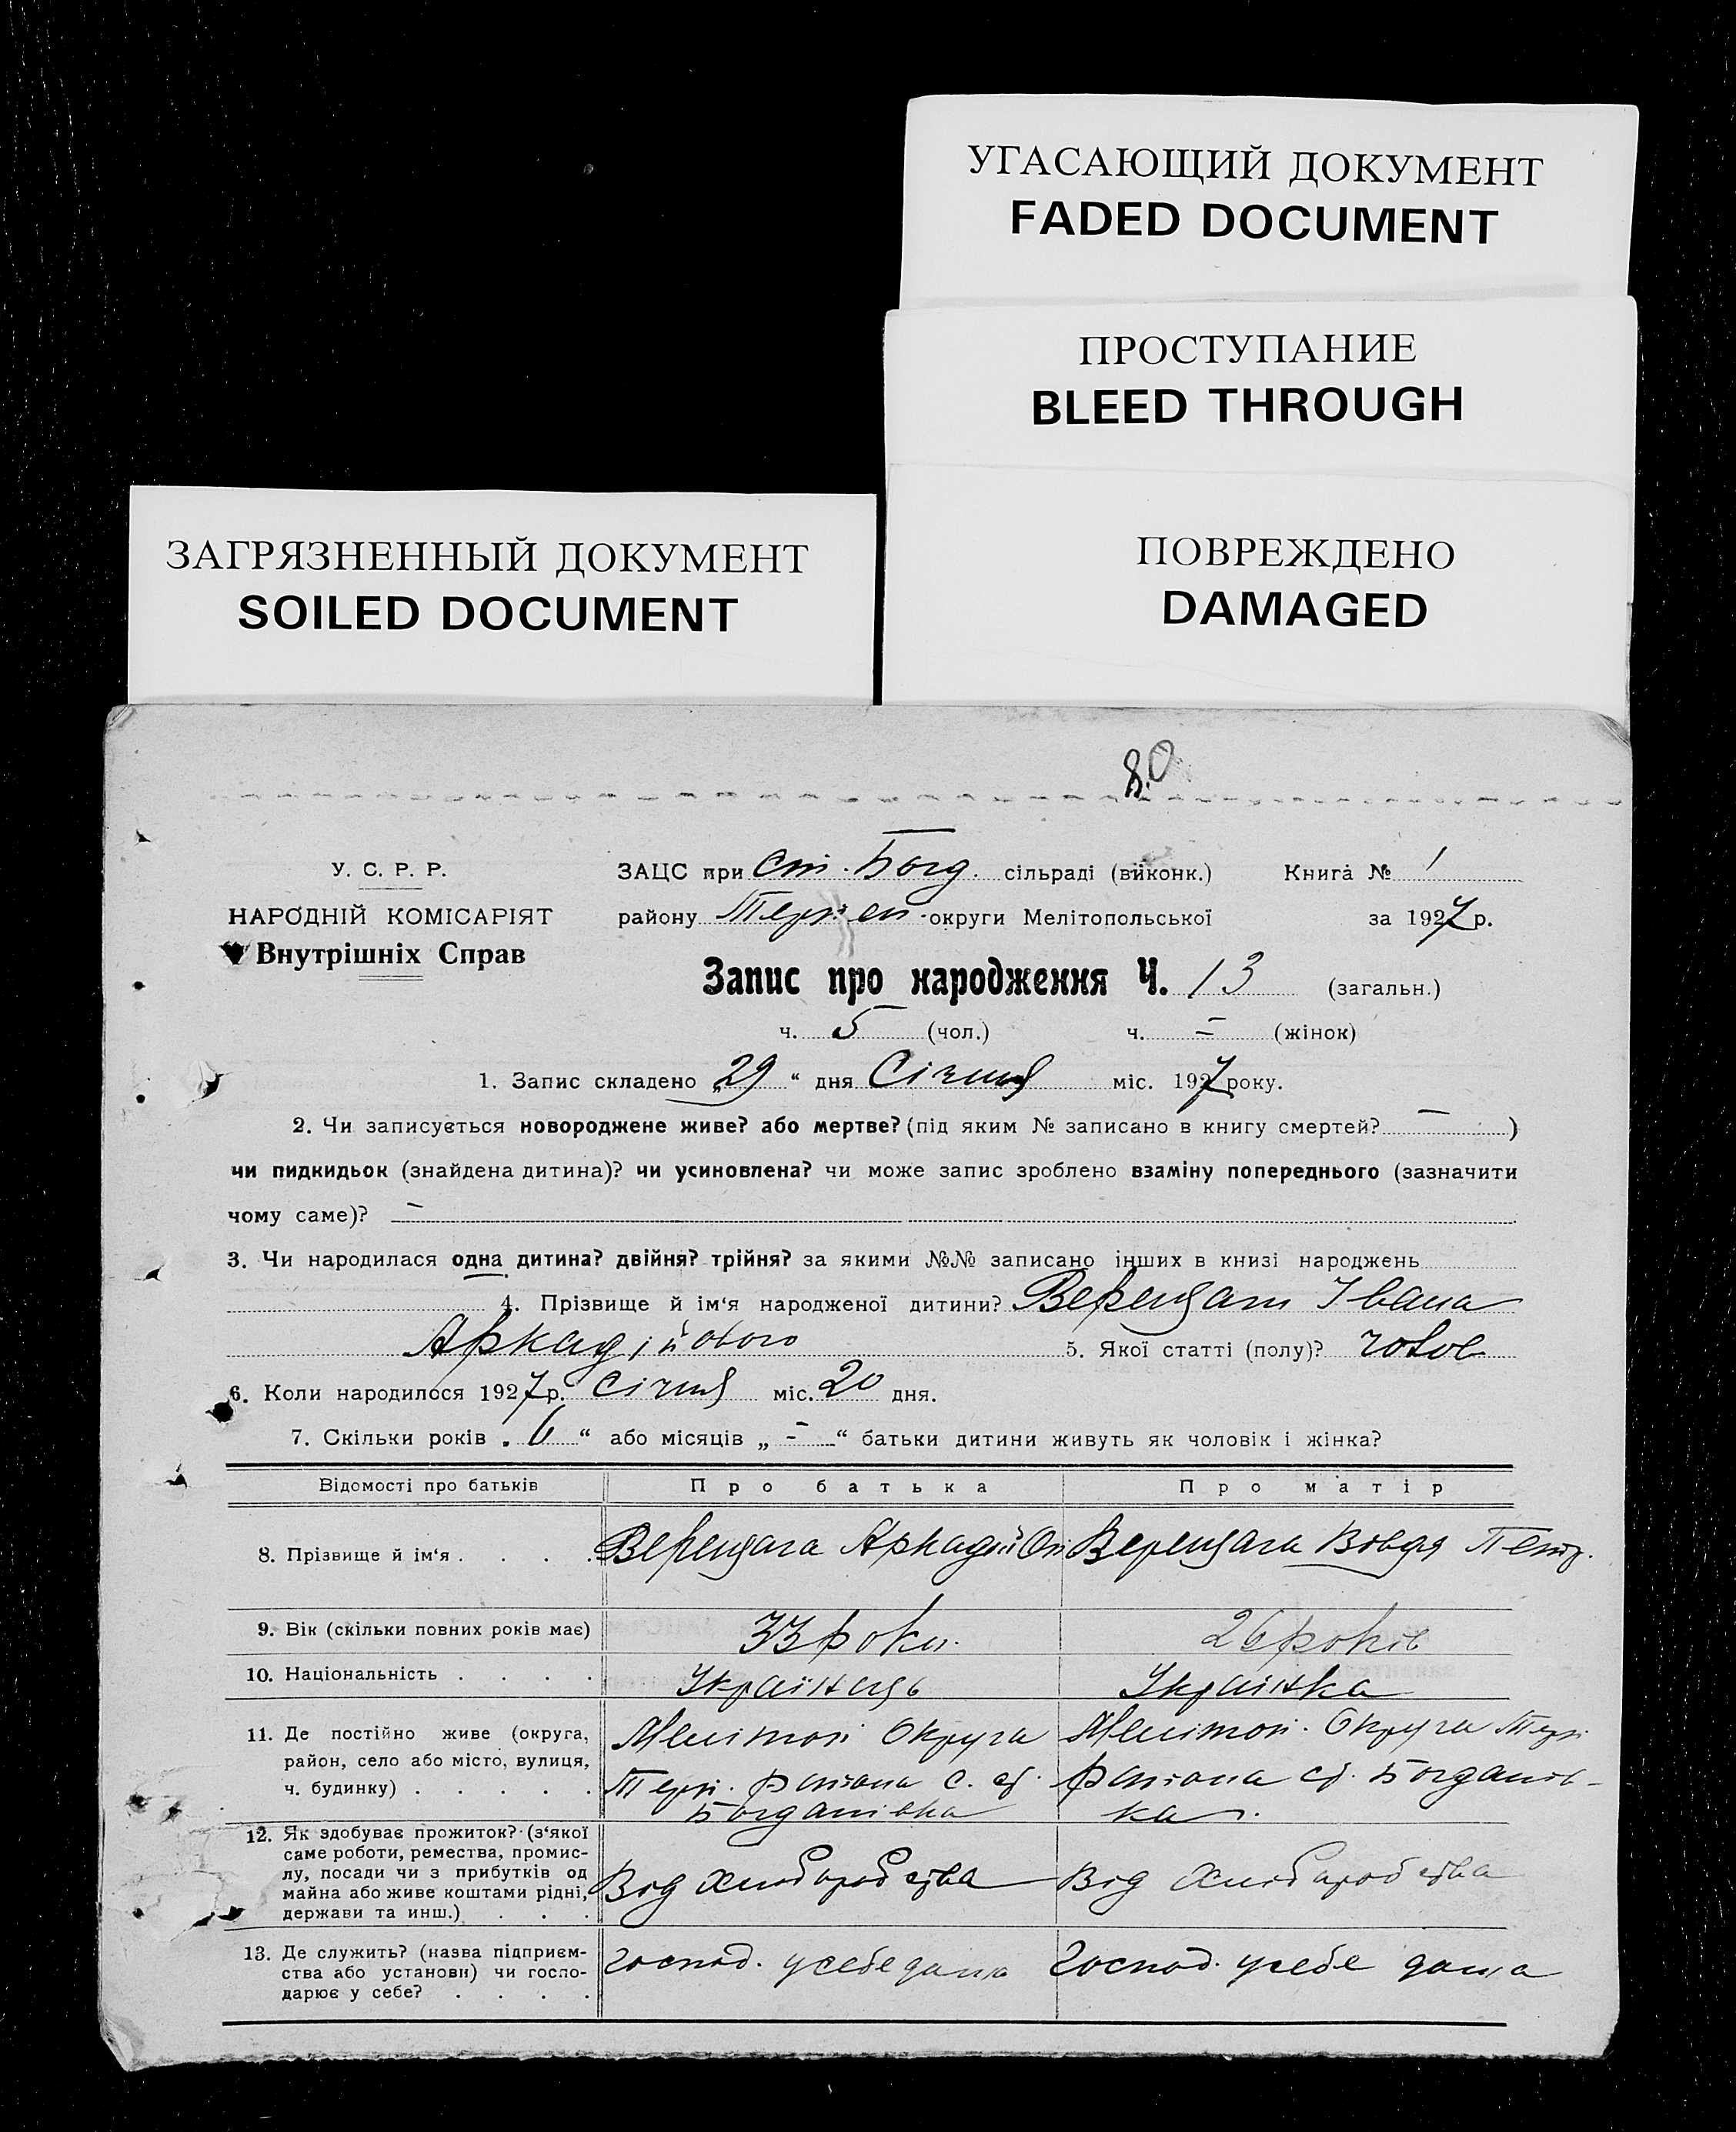 УГАСАЮЩИЙ ДОКУМЕНТ
FADED DOCUMENT
ПРОСТУПАНИЕ
BLEED THROUGH
ЗАГРЯЗНЕННЫЙ ДОКУМЕНТ
SOILED DOCUMENT
ПОВРЕЖДЕНО
DAMAGED
80
У. С. Р. Р.
НАРОДНІЙ КОМІСАРІЯТ
Внутрішніх Справ
ЗАЦС при Ст. Богд. сільраді (виконк.) Книга № 1
району округи Мелітопольської за 1927 р.
Запис про народження Ч. 13 (загальн.)
ч. 5 (чол.) ч. – (жінок)
1. Запис складено „29“ дня Січня міс. 1927 року.
2. Чи записується новороджене живе? або мертве? (під яким № записано в книгу смертей? — )
чи пидкидьок (знайдена дитина)? чи усиновлена? чи може запис зроблено взаміну попереднього (зазначити
чому саме)? –
3. Чи народилася одна дитина? двійня? трійня? за якими №№ записано інших в книзі народжень
4. Прізвище й ім‘я народженої дитини? Верещаги Івана
Аркадійового 5. Якої статті (полу)? чолов
6. Коли народилося 1927 р. Січня міс. 20 дня.
7. Скільки років „6“ або місяців „–“ батьки дитини живуть як чоловік і жінка?
Відомості про батьків Про батька Про матір
8. Прізвище й ім‘я . . . . Верещага Аркадій Верещага Вовдя Петр.
9. Вік (скільки повних років має) 33 роки. 26 років
10. Національність . . . . Українець Українка
11. Де постійно живе (округа, район, село або місто, вулиця, ч. будинку) . . . . .
Мелітоп Округа
Терп. району с. ст.
Богданівка
Мелітоп. Округи Терп.
району ст. Богданів-
ка.
12. Як здобуває прожиток? (з‘якої саме роботи, ремества, промислу, посади чи з прибутків од майна або живе коштами рідні, держави та инш.) . . .
Від Хліборобства Від Хліборобства
13. Де служить? (назва підприємства або установи) чи господарює у себе? . . . .
Господ. у себе дома Господ. у себе дома